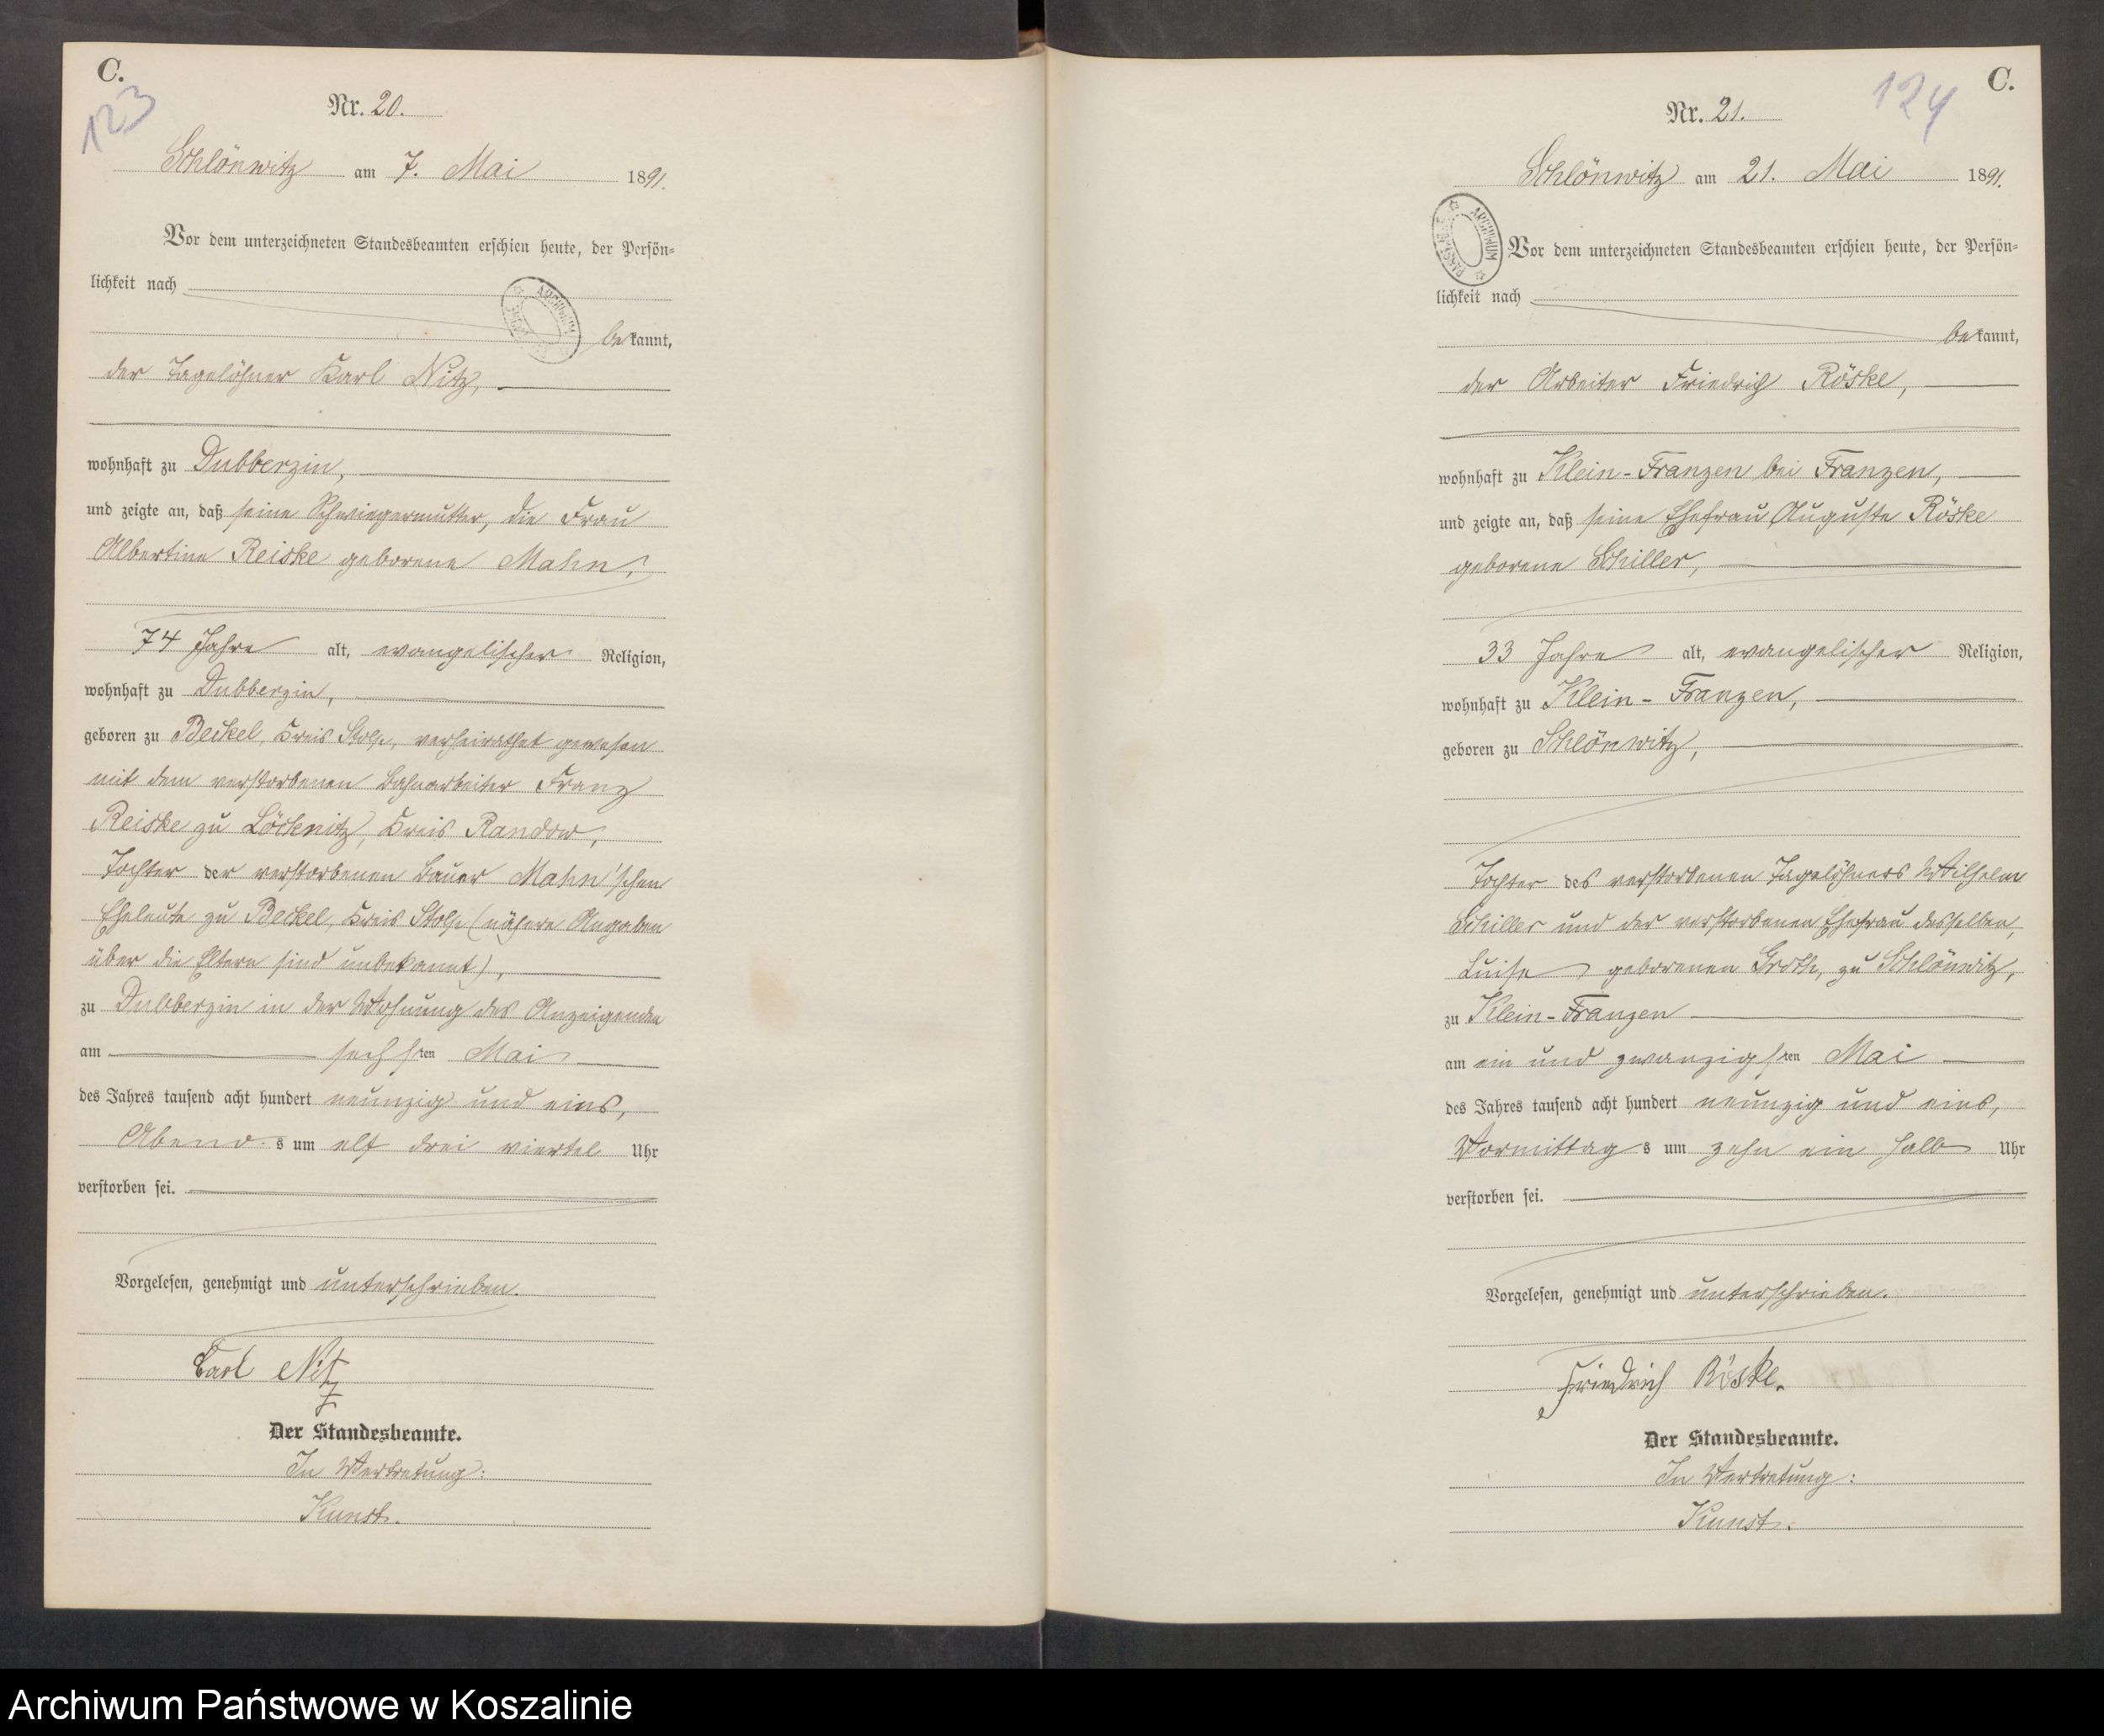 C.
123
Nr. 20.
Schlönwitz am 7. Mai 1891.
Vor dem unterzeichneten Standesbeamten erschien heute, der Persön=
lichkeit nach
bekannt,
der Tagelöhner Karl Nitz,
wohnhaft zu Dubberzin,
und zeigte an, daß seine Schwiegermutter, die Frau
Albertine Reiske geborene Mahn,
74 Jahre alt, evangelischer Religion,
wohnhaft zu Dubberzin,
geboren zu Beckel, Kreis Stolp, verheirathet gewesen
mit dem verstorbenen Bahnarbeiter Franz
Reiske zu Löcknitz, Kreis Randow,
Tochter der verstorbenen Bauer Mahn'schen
Eheleute zu Beckel, Kreis Stolp (nähere Angaben
über die Eltern sind unbekannt),
zu Dubberzin in der Wohnung des Anzeigenden
am sechsten Mai
des Jahres tausend acht hundert neunzig und eins,
Abends um elf drei viertel Uhr
verstorben sei.
Vorgelesen, genehmigt und unterschrieben.
Carl Nitz
Der Standesbeamte.
In Vertretung:
Kunst.
C.
124
Nr. 21.
Schlönwitz am 21. Mai 1891.
ARCHIWUM
Vor dem unterzeichneten Standesbeamten erschien heute, der Persön=
lichkeit nach
bekannt,
der Arbeiter Friedrich Röske,
wohnhaft zu Klein-Franzen bei Franzen,
und zeigte an, daß seine Ehefrau Auguste Röske
geborene Schiller,
33 Jahre alt, evangelischer Religion,
wohnhaft zu Klein-Franzen,
geboren zu Schlönwitz,
Tochter des verstorbenen Tagelöhners Wilhelm
Schiller und der verstorbenen Ehefrau desselben,
Luise geborenen Groth, zu Schlönwitz,
zu Klein-Franzen
am ein und zwanzigsten Mai
des Jahres tausend acht hundert neunzig und eins,
Vormittags um zehn ein halb Uhr
verstorben sei.
Vorgelesen, genehmigt und unterschrieben.
Friedrich Röske.
Der Standesbeamte.
In Vertretung:
Kunst.
Archiwum Państwowe w Koszalinie